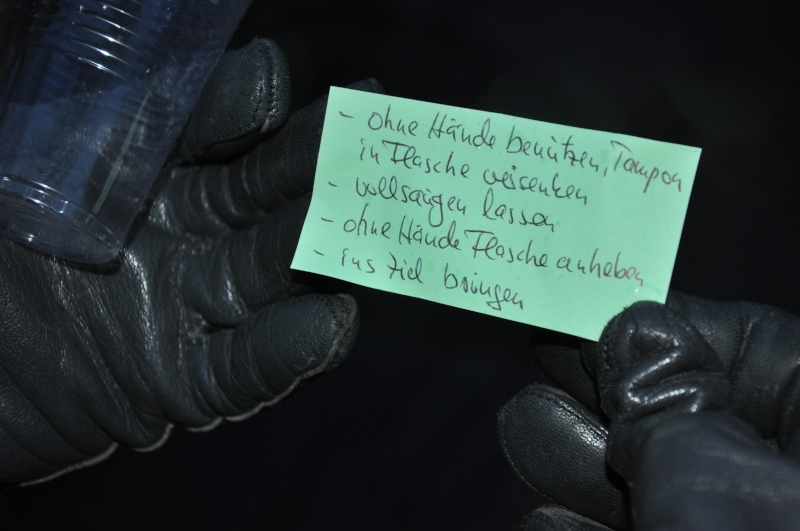 - ohne Hände benützen, Tampon
in Flasche versenken
- vollsaugen lassen
- ohne Hände Flasche anheben
- ins Ziel bringen